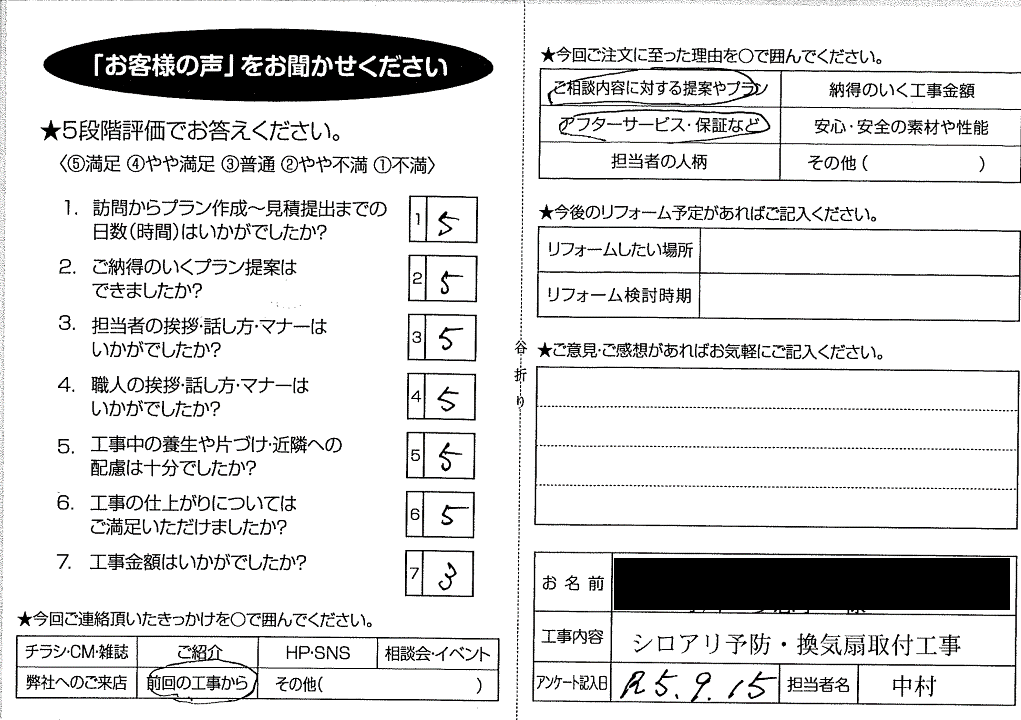 「お客様の声」をお聞かせください
★5段階評価でお答えください。
〈⑤満足 ④やや満足 ③普通 ②やや不満 ①不満〉
1. 訪問からプラン作成〜見積提出までの
日数(時間)はいかがでしたか?
1 5
2. ご納得のいくプラン提案は
できましたか?
2 5
3. 担当者の挨拶・話し方・マナーは
いかがでしたか?
3 5
4. 職人の挨拶・話し方・マナーは
いかがでしたか?
4 5
5. 工事中の養生や片づけ・近隣への
配慮は十分でしたか?
5 5
6. 工事の仕上がりについては
ご満足いただけましたか?
6 5
7. 工事金額はいかがでしたか?
7 3
★今回ご連絡頂いたきっかけを〇で囲んでください。
チラシ・CM・雑誌 ご紹介 HP・SNS 相談会・イベント
弊社へのご来店 前回の工事から その他( )
谷折り
★今回ご注文に至った理由を〇で囲んでください。
ご相談内容に対する提案やプラン 納得のいく工事金額
アフターサービス・保証など 安心・安全の素材や性能
担当者の人柄 その他( )
★今後のリフォーム予定があればご記入ください。
リフォームしたい場所
リフォーム検討時期
★ご意見・ご感想があればお気軽にご記入ください。
お名前
工事内容 シロアリ予防・換気扇取付工事
アンケート記入日 R5.9.15 担当者名 中村